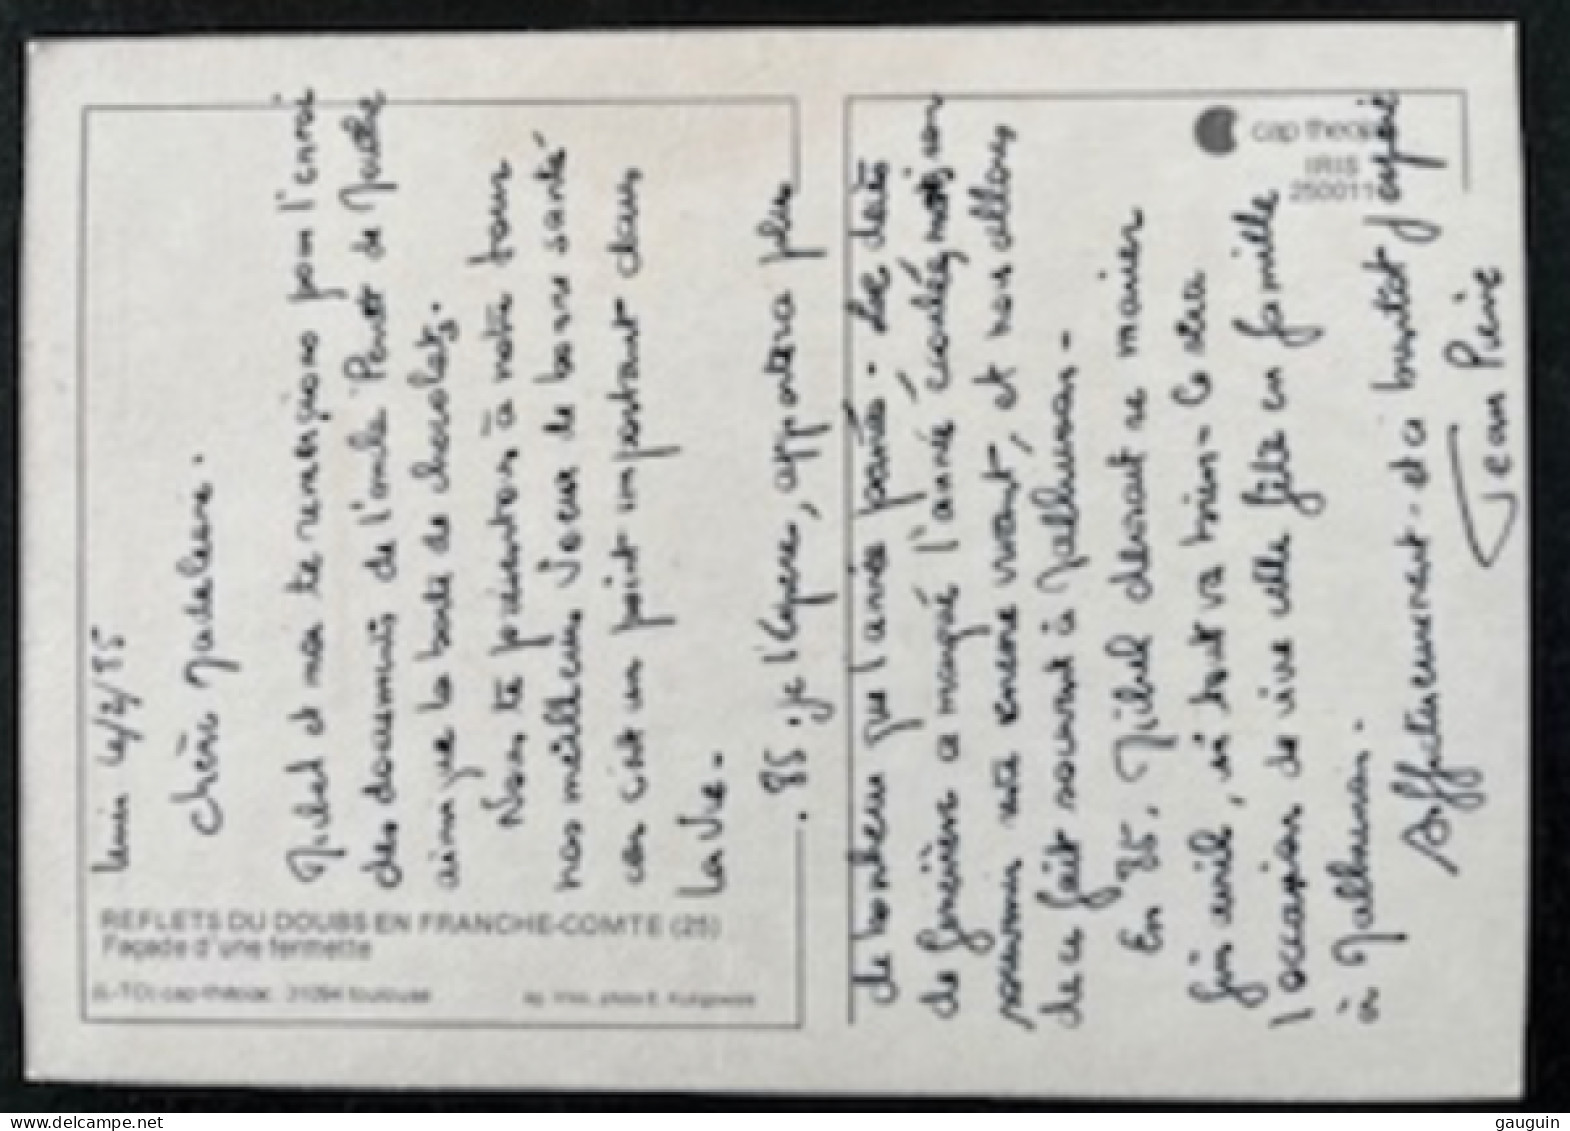 4/2/85
Chère Madeleine.
Michel et moi te remercions pour l'envoi
des documents de l'oncle Pierrot de Maîche
ainsi que la boîte de chocolats.
Nous te présentons à notre tour
nos meilleurs voeux de bonne santé
car c'est un point important dans
la vie.
85, je l'espère, apportera plus
de bonheur que l'année passée. Le décès
de a marqué l'année écoulée, mais son
souvenir est encore vivant, et nous allons
de ce fait souvent à
En 85, Michel devrait se marier
fin avril, si tout va bien. Ce sera
l'occasion de vivre une fête en famille
à
Affectueusement. et à bientôt j'espère
Jean Pierre
REFLETS DU DOUBS EN FRANCHE-COMTE (25)
Façade d'une fermette
(L-TO) cap-théojac 31094 toulouse
photo E.
cap theojac
IRIS
250011
gauguin © www.delcampe.net